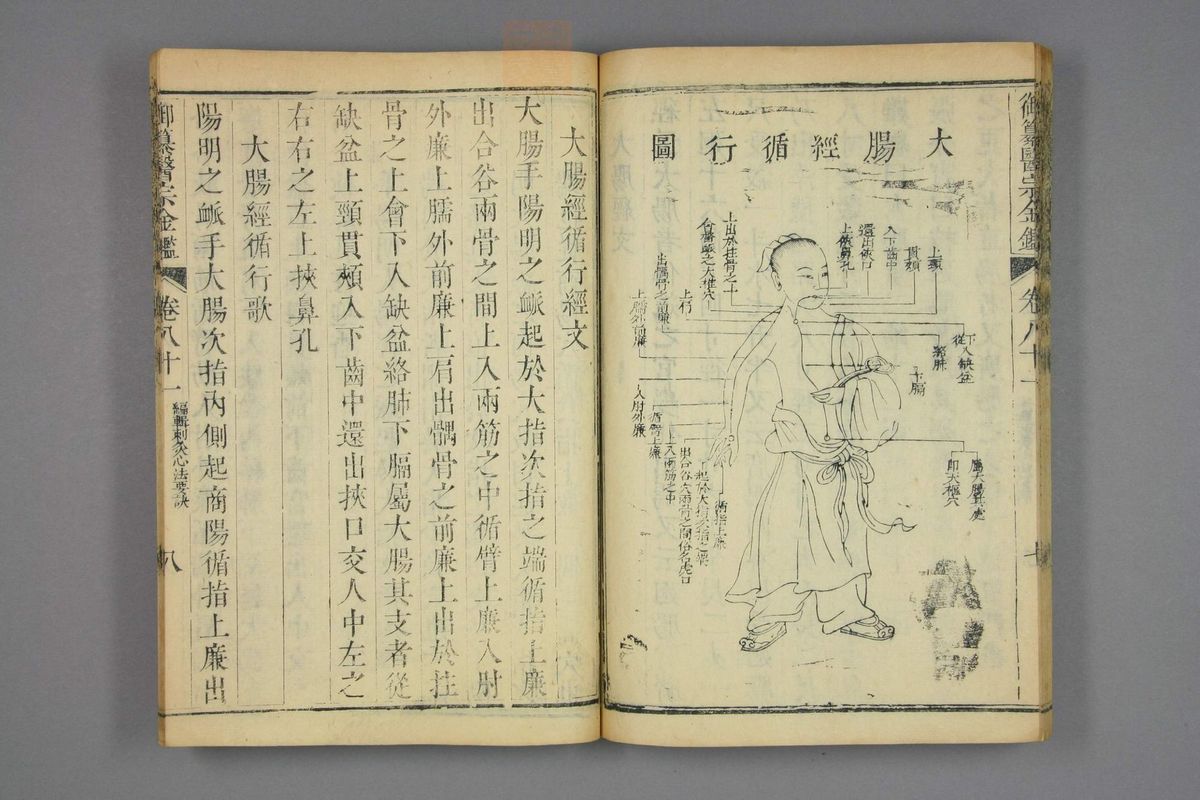 御纂醫宗金鑑 卷八十一
七
大腸經循行圖
上頞
貫頰
入下齒中
還出俠口
上俠鼻孔
上出於柱骨之上
合督脈之大椎穴
出髃骨之前廉
上肩
上臑外前廉
入肘外廉
循臂上廉
上入兩筋之中
出合谷穴兩骨之間俗名虎口
起於大指次指之端
循指上廉
下入缺盆
從
絡肺
下膈
屬大腸
即天樞穴
大腸經循行經文
大腸手陽明之脈起於大指次指之端循指上廉
出合谷兩骨之間上入兩筋之中循臂上廉入肘
外廉上臑外前廉上肩出髃骨之前廉上出於柱
骨之上會下入缺盆絡肺下膈屬大腸其支者從
缺盆上頸貫頰入下齒中還出挾口交人中左之
右右之左上挾鼻孔
大腸經循行歌
陽明之脈手大腸次指內側起商陽循指上廉出
御纂醫宗金鑑 卷八十一 編輯刺灸心法要訣
八